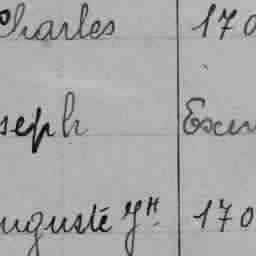 Charles 170
seph Exem
uguste Jh 170